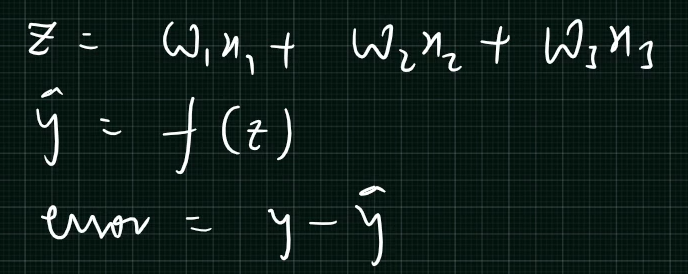 z = ω₁x₁ + ω₂x₂ + ω₃x₃
ŷ = f(z)
error = y - ŷ